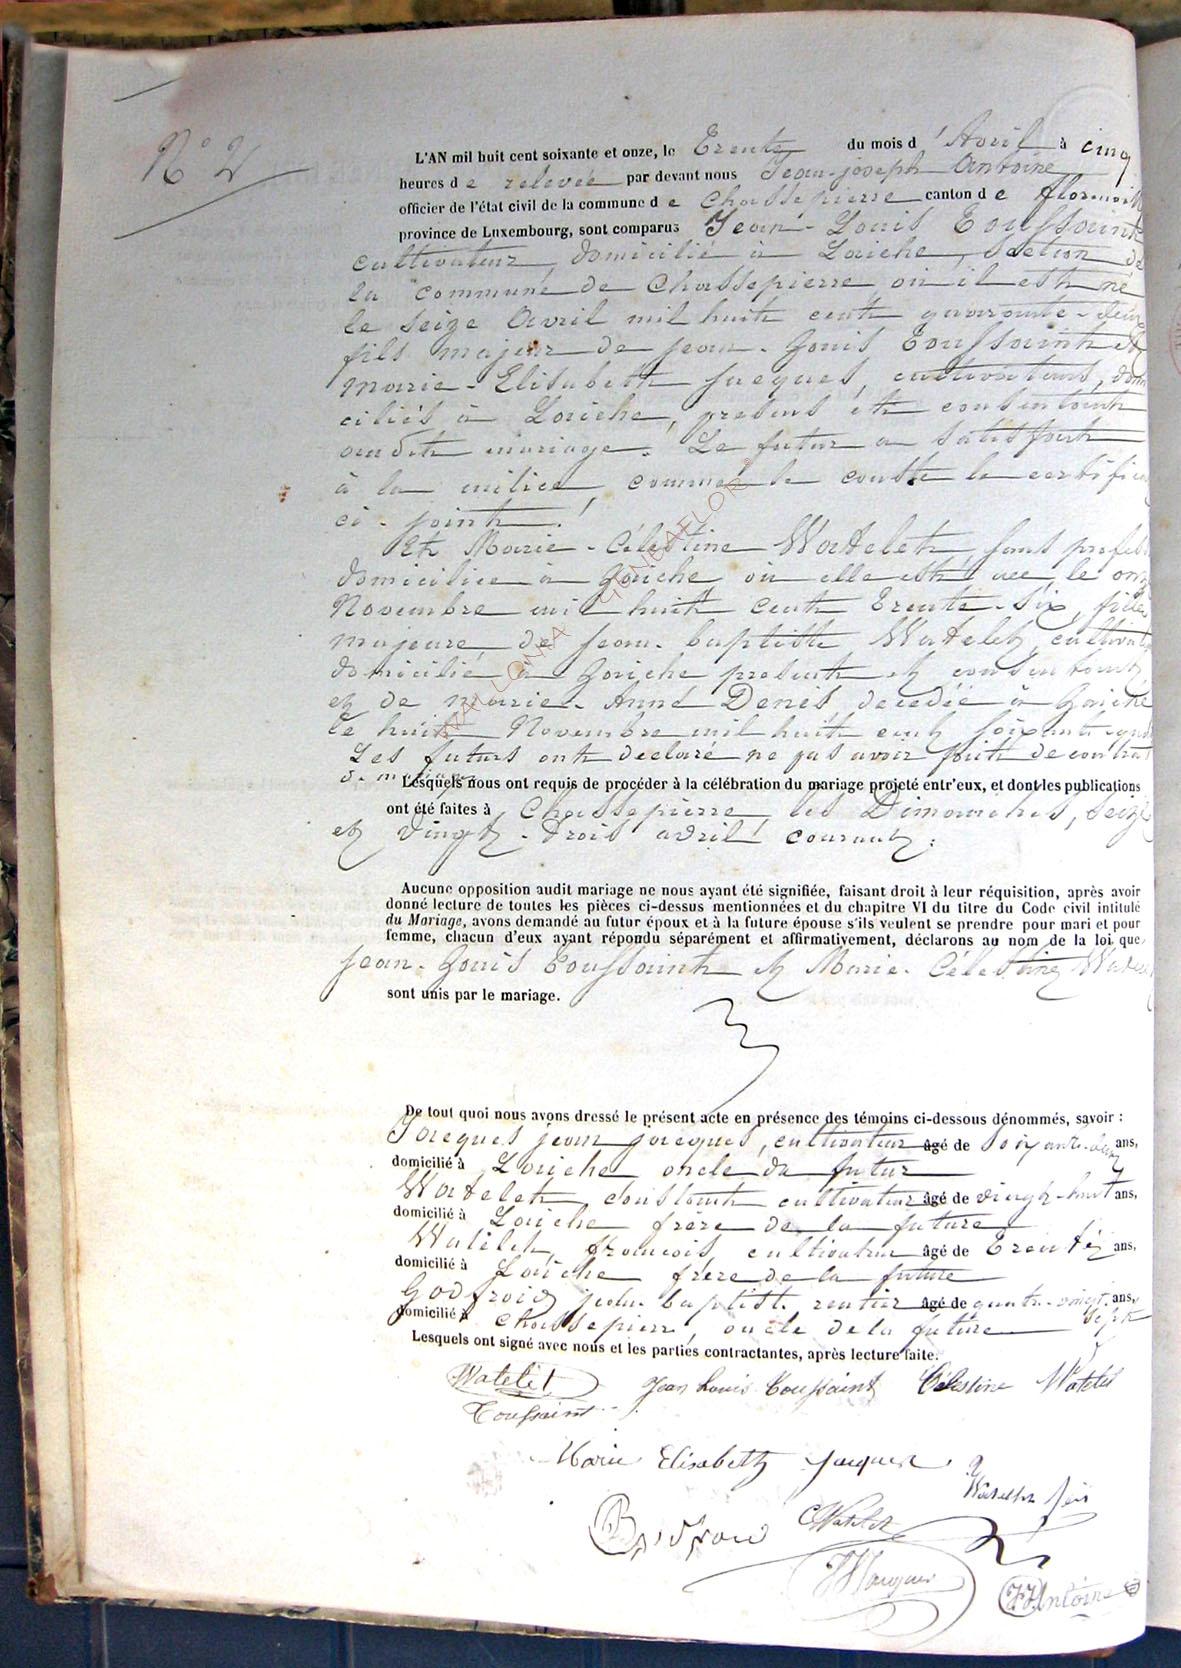 N° 2
L'AN mil huit cent soixante et onze, le Trente du mois d'Avril à cinq
heures de relevée par devant nous Jean-joseph Antoine
officier de l'état civil de la commune de Chassepierre canton de florenville
province de Luxembourg, sont comparus Jean-Louis Toussaint
cultivateur, domicilié à Laiche, section de
la commune de Chassepierre où il est né
le seize Avril mil huit cent quarante-deux
fils majeur de jean-Louis Toussaint et
marie-Elisabeth Jacques, cultivateurs, domi
ciliés à Laiche, présens et consentant
audit mariage. Le futur a satisfait
à la milice, comme le conste le certificat
ci-joint.
Et Marie-Célestine Watelet, sans profes
domiciliée à Laiche où elle est née le onze
Novembre mil huit cent Trente-six, fille
majeure de jean-baptiste Watelet cultivat
domicilié à Laiche présent et consentant
et de marie-Anne Denis décédée à Laiche
le huit Novembre mil huit cent soixante
Les futurs ont déclaré ne pas avoir fait de contrat
de mariage
WALLONIA GENEAFLOR
Lesquels nous ont requis de procéder à la célébration du mariage projeté entr'eux, et dont les publications
ont été faites à Chassepierre, les Dimanches, seize
et vingt-trois avril courant.
Aucune opposition audit mariage ne nous ayant été signifiée, faisant droit à leur réquisition, après avoir
donné lecture de toutes les pièces ci-dessus mentionnées et du chapitre VI du titre du Code civil intitulé
du Mariage, avons demandé au futur époux et à la future épouse s'ils veulent se prendre pour mari et pour
femme, chacun d'eux ayant répondu séparément et affirmativement, déclarons au nom de la loi que
Jean-Louis Toussaint et Marie-Célestine Watelet
sont unis par le mariage.
De tout quoi nous avons dressé le présent acte en présence des témoins ci-dessous dénommés, savoir :
Jacques jean jacques, cultivateur âgé de soixante-deux ans,
domicilié à Laiche oncle du futur
Watelet, Constant cultivateur âgé de vingt-huit ans,
domicilié à Laiche frère de la future
Watelet, françois, cultivateur âgé de Trente ans,
domicilié à Laiche frère de la future
Godfroid jean baptiste rentier âgé de quatre-vingt ans,
domicilié à Chassepierre, oncle de la future sept
Lesquels ont signé avec nous et les parties contractantes, après lecture faite.
Watelet Jean Louis Toussaint Célestine Watelet
Toussaint
Marie Elisabeth Jacques
Watelet fois
C Watelet
JJ Jacques
JJ Antoine